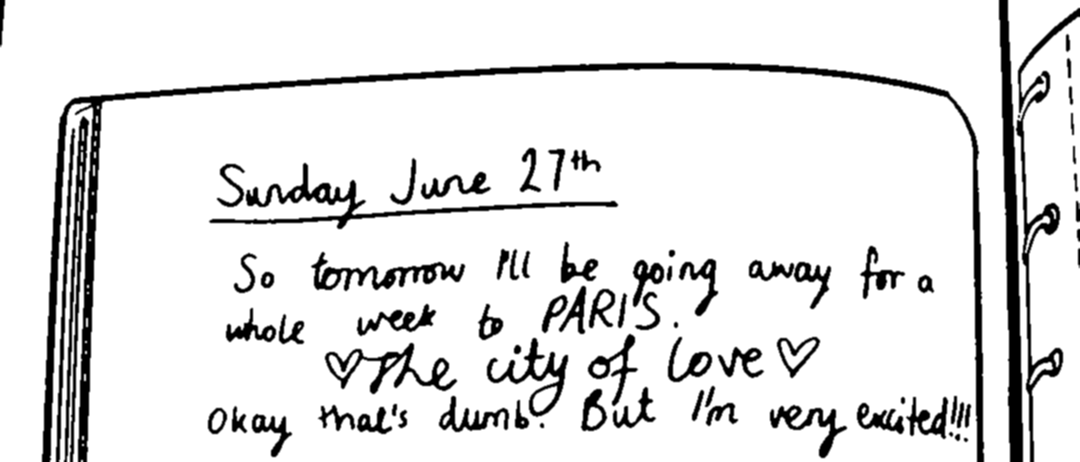 Sunday June 27th
So tomorrow I'll be going away for a
whole week to PARIS.
♡The city of love♡
Okay that's dumb. But I'm very excited!!!